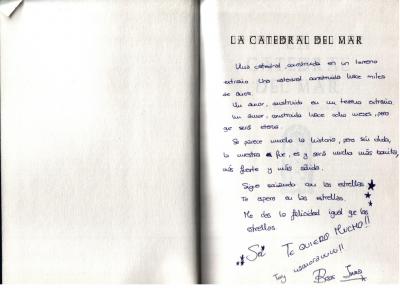 LA CATEDRAL DEL MAR
Una catedral, construida en un terreno
extraño. Una catedral construida hace miles
de años.
Un amor, construido en un terreno extraño.
Un amor, construido hace ocho meses, pero
que será eterno.
Se parece mucho la historia, pero sin duda,
la nuestra fue, es y será mucho más bonita,
más fuerte y más sólida.
Sigue soñando con las estrellas
Te espero en las estrellas.
Me das la felicidad igual que las
estrellas.
TE QUIERO MUCHO!!